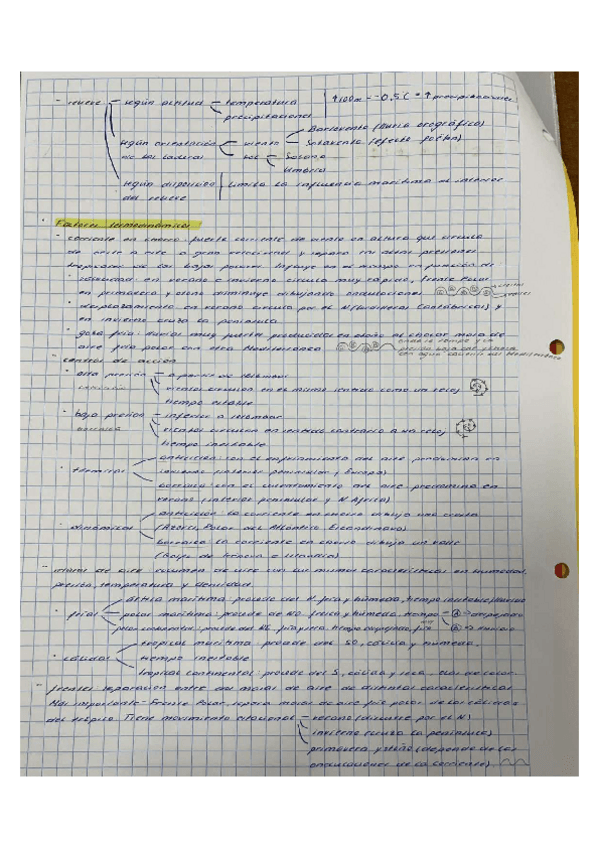 - relieve - según altitud - temperatura | ↑100m = -0,5°C = ↑precipitaciones
precipitaciones
Barlovento (lluvia orográfica)
según orientación - viento - Sotavento (efecto foehn)
de las laderas - sol - Solana
Umbría
según disposición | limita la influencia marítima al interior
del relieve
Factores termodinámicos
corriente en chorro: fuerte corriente de viento en altura que circula
de oeste a este a gran velocidad y separa las altas presiones
tropicales de las bajas polares. Influye en el tiempo en función de
velocidad: en verano e invierno circula muy rápido, Frente Polar
en primavera y otoño disminuye dibujando ondulaciones
desplazamiento: en verano circula por el N (borrascas Cantábricas) y
en invierno cruza la península
gota fría: lluvias muy fuertes producidas en otoño al chocar masa de
aire fría polar con otra Mediterránea
con agua caliente del Mediterráneo
- centros de acción
alta presión - a partir de 1016mbar
anticiclón
vientos circulan en el mismo sentido como un reloj
tiempo estable
baja presión - inferior a 1016mbar
borrasca
vientos circulan en sentido contrario a un reloj
tiempo inestable
térmicos
anticiclón: con el enfriamiento del aire predominan en
invierno (interior peninsular y Europa)
borrasca: con el calentamiento del aire predomina en
verano (interior peninsular y N África)
dinámicos
anticiclón: la corriente en chorro dibuja una cresta
(Azores, Polar del Atlántico, Escandinavo)
borrasca: la corriente en chorro dibuja un valle
(Golfo de Génova e Islandia)
- masas de aire: volumen de aire con las mismas características en humedad,
presión, temperatura y densidad
frías
ártica marítima: procede del N, fría y húmeda, tiempo inestable/lluvias
polar marítima: procede de NO, fresca y húmeda, tiempo
polar continental: procede del NE, fría y seca, tiempo
cálidas
tropical marítima: procede del SO, cálida y húmeda,
tiempo inestable
tropical continental: procede del S, cálida y seca, olas de calor
- frentes: separación entre dos masas de aire de distintas características
Más importante - Frente Polar, separa masas de aire frío polar de las cálidas
del trópico. Tiene movimiento estacional - verano (discurre por el N)
invierno (cruza la península)
primavera y otoño (depende de las
ondulaciones de la corriente)